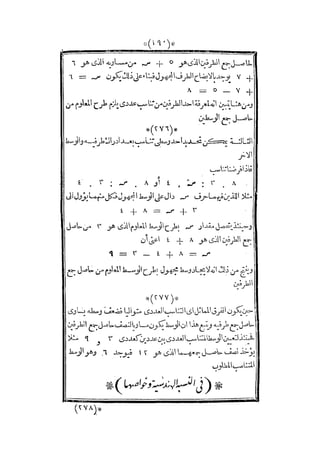 *(١٩٠)*
لحاصل جمع الطرفين الذى هو ٥ + س من مساويه الذى هو ٦
+ ٧ يوجد بالايضاح الطرف المجهول فبناء على ذلك يكون س = ٦
+ ٧ − ٥ = ٨
ومن هنا يتبين انه لمعرفة احد الطرفين من تناسب عددى يلزم طرح المعلوم من
حاصل جمع الوسطين
*(٢٧٦)*
الثالثة يمكن تحديد احد وسطى تناسب بعد ادراك طرفيه والوسط
الآخر
فاذا فرضنا تناسب
٨ . ٣ : س . ٤ أو ٨ . س : ٣ . ٤
مثلا اللذين فيهما حرف س دال على الوسط المجهول فكل منهما يؤول الى
٣ + س = ٨ + ٤
وحينئذ يتحصل مقدار س بطرح الوسط المعلوم الذى هو ٣ من حاصل
جمع الطرفين الذى هو ٨ + ٤ اعنى أن
س = ٨ + ٤ − ٣ = ٩
وينتج من ذلك انه لايجاد وسط مجهول يطرح الوسط المعلوم من حاصل جمع
الطرفين
*(٢٧٧)*
حين يكون الفرق المماثل اى التناسب العددى متواليا فضعف وسطه يساوى
حاصل جمع طرفيه وينتج من هذا ان الوسط يكون مساويا لنصف حاصل جمع الطرفين
فحينئذ لتعيين الوسط المتناسب العددى بين عددين كعددى ٣ و ٩ مثلا
يؤخذ نصف حاصل جمعهما الذى هو ١٢ فيوجد ٦ وهو الوسط
المتناسب المطلوب
*(فى النسبة الهندسية وخواصها)*
*(٢٧٨)*